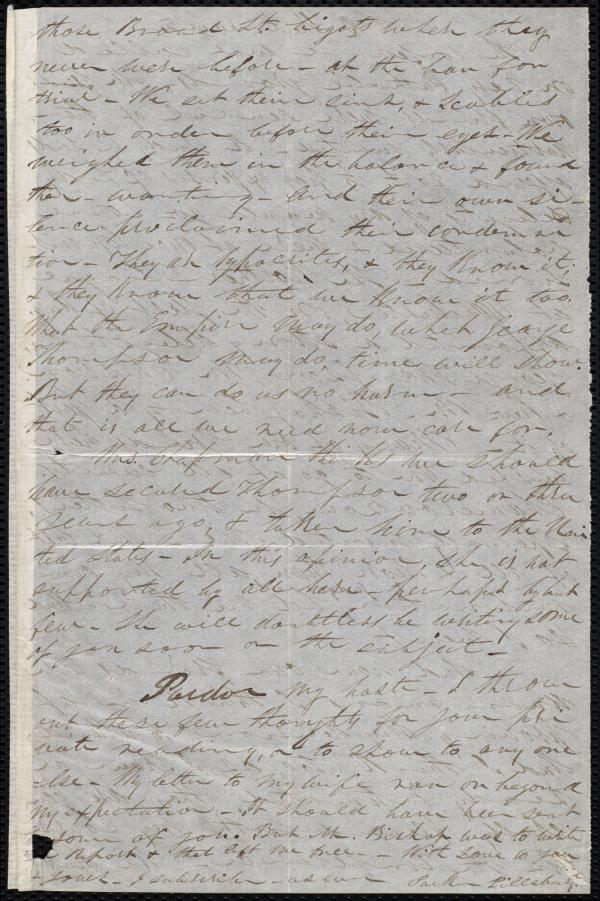 those Broad St. bigots where they
never were before - at the bar for
trial - We set their sins, & Scables
too in order before their eyes - We
weighed them in the balance & found
them - wanting - and their own si-
lence proclaimed their condemna
tion - They are hypocrites, & they know it,
& they know that we know it too.
What the Empire may do, what George
Thompson may do, time will show.
But they can do us no harm - and
that is all we need now care for.
Mrs. Chapman thinks we should
have secured Thompson two or three
years ago, & taken him to the Uni
ted States - In this opinion, she is not
supported by all here - perhaps by but
few - She will doubtless be writing some
of you soon on the subject -
Pardon my haste - I throw
out these few thoughts for your pri
vate reading, or to show to any one
else - My letter to my wife ran on beyond
my expectation - It should have been sent
some of you. But Mr. Bishop was to write
a report & that left me free - With love to you
& yours - I subscribe - as ever Parker Pillsbury.